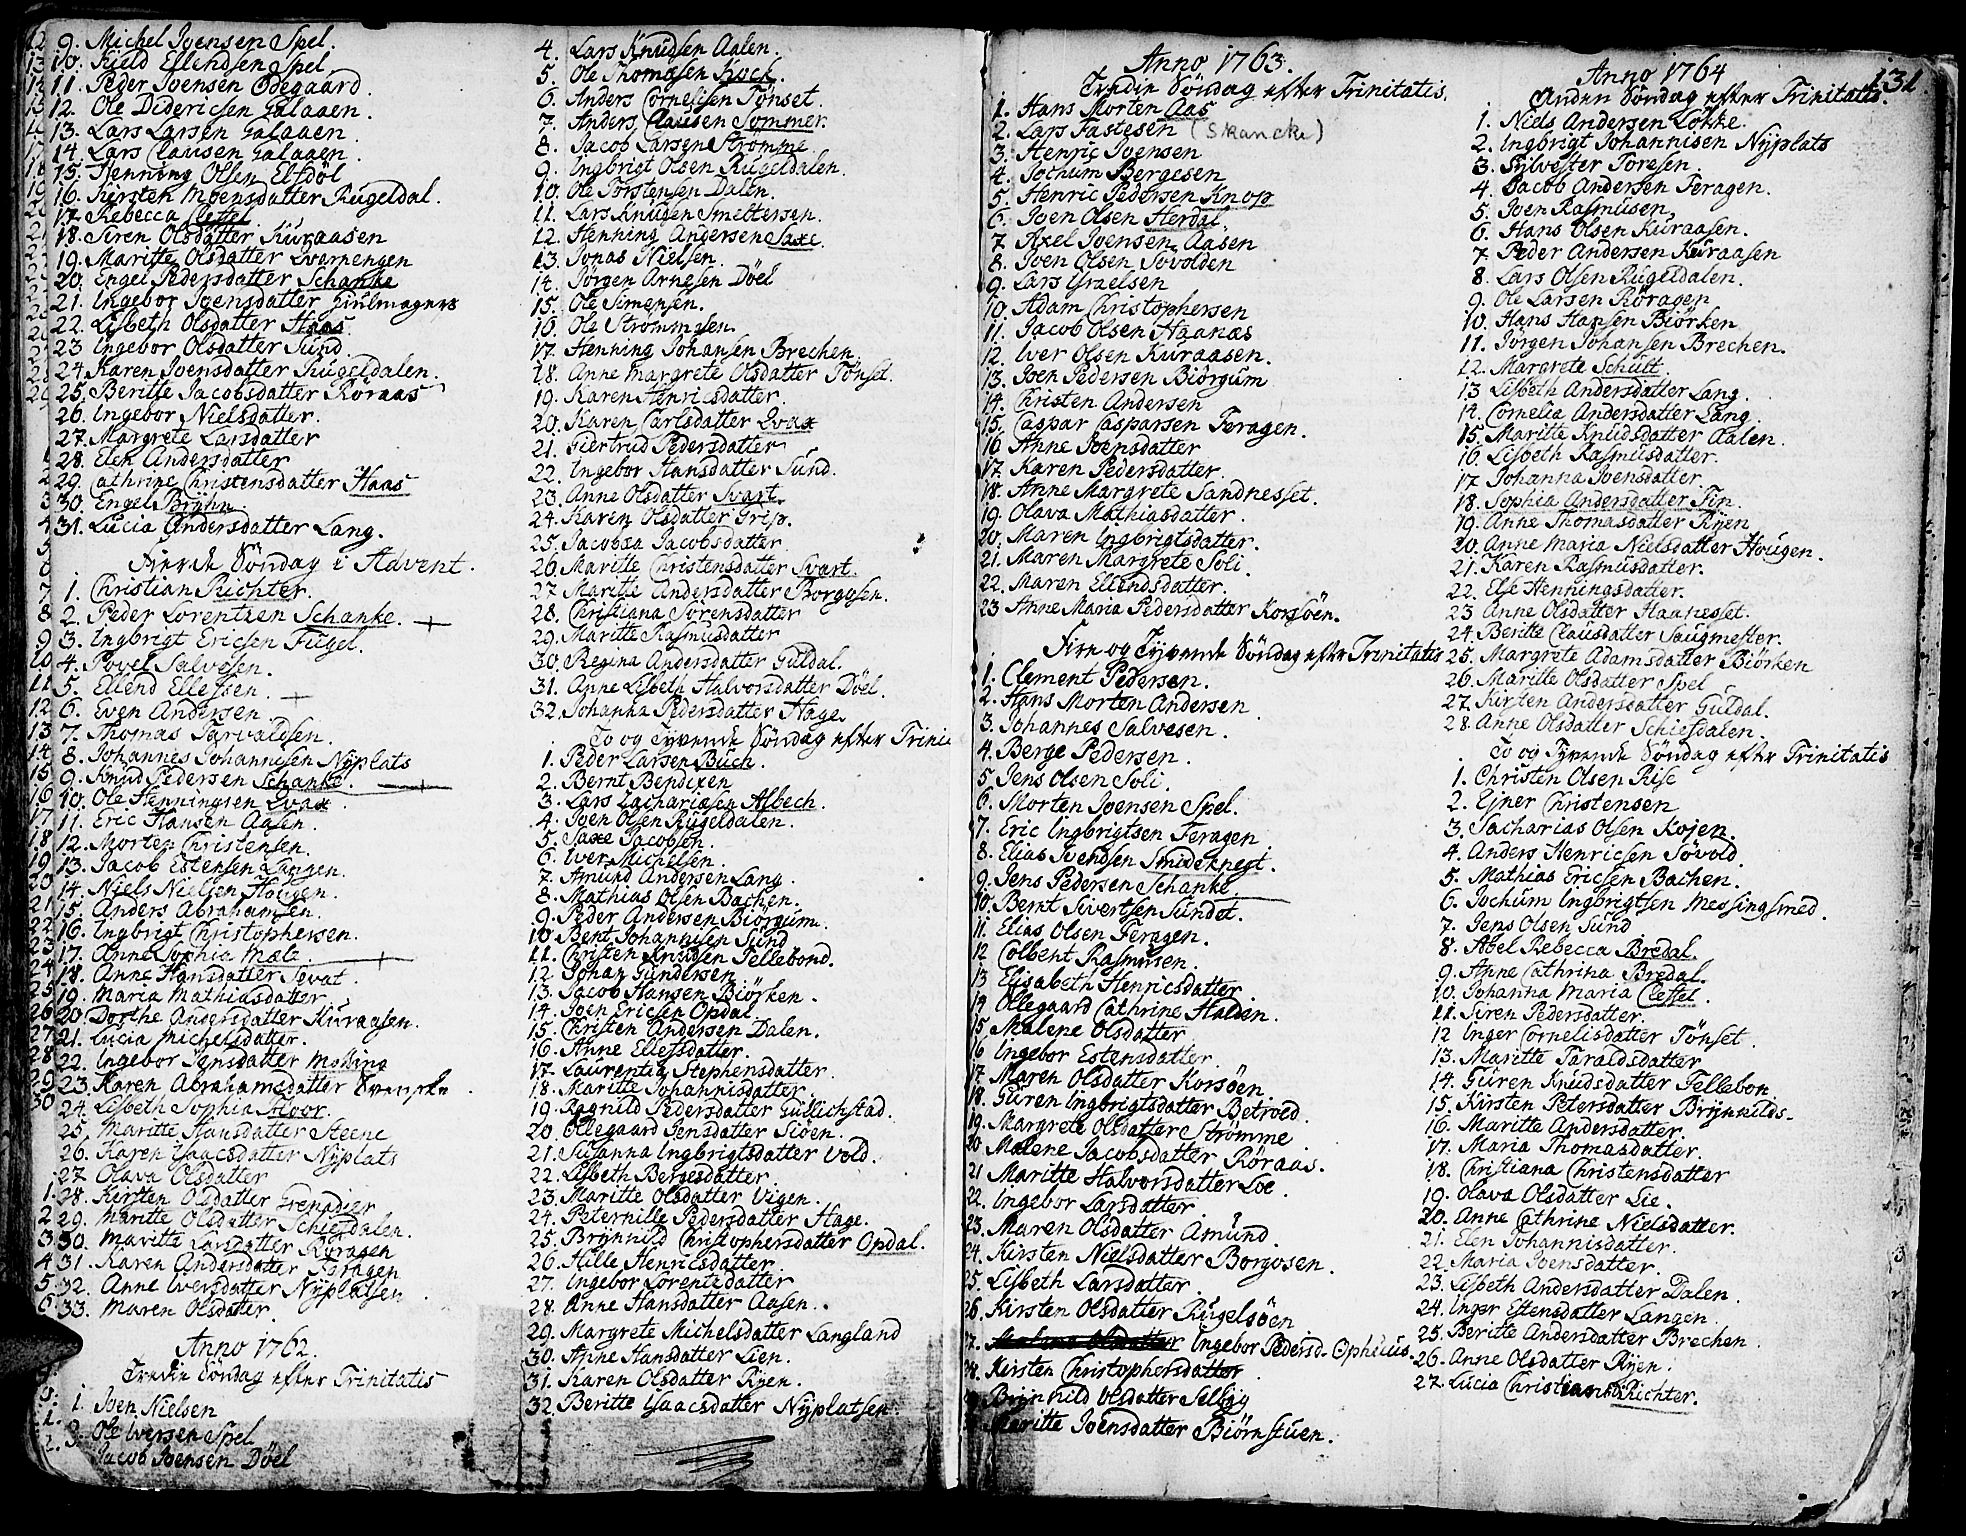 9. Michel Joensen Spel.
10. Kield Ellendsen Spel
11. Peder Joensen Ödegaard.
12. Ole Didericsen Galaaen.
13. Lars Larsen Galaaen.
14. Lars Clausen Galaaen.
15. Henning Olsen Elfdöl
16. Kirsten Moensdatter Rugeldal.
17. Rebecca Cleffel
18. Siren Olsdatter Kuraasen
19. Maritte Olsdatter Qvarnengen
20. Engel Pedersdatter Schanke
21. Ingebor Joensdatter Hiulmagers
22. Lisbeth Olsdatter Haas
23 Ingebor Olsdatter Sund.
24. Karen Joensdatter Rugeldalen.
25. Beritte Jacobsdatter Röraas
26. Ingebor Nielsdatter.
27. Margrete Larsdatter
28. Elen Andersdatter
29. Cathrine Christensdatter Haas
30. Engel Bryhn
31. Lucia Andersdatter Lang.
Fierde Söndag i Advent.
1. Christian Richter.
2. Peder Lorentzen Schanke.
3. Ingbrigt Ericsen Fugel.
4. Povel Salvesen.
5. Ellend Ellefsen.
6. Even Andersen.
7. Thomas Tarvaldsen.
8. Johannes Johannisen Nyplats
9. Knud Pedersen Schanke.
10. Ole Henningsen Qvax.
11. Eric Hansen Aasen.
12. Morten Christensen.
13. Jacob Estensen Langen.
14. Niels Nielsen Hovgen.
15. Anders Abrahamsen.
16. Ingbrigt Christophersen.
17. Anne Sophia Malz.
18. Anne Hansdatter Tevat.
19. Maria Mathiasdatter
20. Dorthe Andersdatter Kuraasen.
21. Lucia Michelsdatter.
22. Ingebor Jensdatter Mohling
23. Karen Abrahamsdatter Svenske.
24. Lisbeth Sophia Floor.
25. Maritte Hansdatter Steene
26. Karen Isaacsdatter Nyplats
27. Olava Olsdatter
28. Kirsten Olsdatter Grenadier
29. Maritte Olsdatter Schiefdalen.
30. Maritte Larsdatter Röragen
31. Karen Andersdatter Röragen
32. Anne Iversdatter Nyplatsen
33. Maren Olsdatter.
Anno 1762.
Tredie Söndag efter Trinitatis
1. Joen Nielsen
2. Ole Iversen Spel.
3. Jacob Joensen Döel
4. Lars Knudsen Aalen.
5. Ole Thomasen Kock.
6. Anders Cornelisen Tönset.
7. Anders Clausen Sommer.
8. Jacob Larsen Strömme.
9. Ingbrigt Olsen Rugeldalen.
10. Ole Torstensen Dalen.
11. Lars Knudsen Smeltersen.
12. Henning Andersen Saxe.
13. Jonas Nielsen.
14. Jörgen Arnesen Döel
15. Ole Simensen.
16. Ole Strommesen.
17. Henning Johansen Brechen.
18. Anne Margrete Olsdatter Tönset.
19. Karen Henricsdatter.
20. Karen Carlsdatter Qvax
21. Giertrud Pedersdatter
22. Ingebor Hansdatter Sund.
23. Anne Olsdatter Svart.
24. Karen Olsdatter Grip.
25. Jacobsa Jacobsdatter
26. Maritte Christensdatter Svart.
27. Maritte Andersdatter Borgosen.
28. Christiana Sörensdatter
29. Maritte Rasmusdatter
30. Regina Andersdatter Guldal.
31. Anne Lisbeth Halvorsdatter Döel.
32. Johanna Pedersdatter Hage.
To og Tyvende Söndag efter Trini
1. Peder Larsen Buch.
2. Bernt Bendixen
3. Lars Zachariasen Albech.
4. Joen Olsen Rugeldalen.
5. Saxe Jacobsen.
6. Iver Michelsen.
7. Amund Andersen Lang.
8. Mathias Olsen Bachen.
9. Peder Andersen Biörgum.
10. Bent Johannisen Sund
11. Christen Knudsen Tellebond.
12. Johan Gundersen
13. Jacob Hansen Biörken.
14. Joen Ericsen Opdal
15. Christen Andersen Dalen.
16. Anne Ellefsdatter.
17. Laurentia Stephensdatter.
18. Maritte Johannisdatter
19. Ragnild Pedersdatter Gullichstad.
20. Ollegaard Jensdatter Siöen.
21. Susanna Ingbrigtsdatter Vold.
22. Lisbeth Bergesdatter
23. Maritte Olsdatter Vigen.
24. Peternille Pedersdatter Hage.
25. Brynnild Christophersdatter Opdal.
26. Hille Henricsdatter
27. Ingebor Lorentzdatter
28. Anne Hansdatter Aasen.
29. Margrete Michelsdatter Langland
30. Anne Hansdatter Lien.
31. Karen Olsdatter Ryen.
32. Beritte Isaacsdatter Nyplatsen.
Anno 1763.
Tredie Söndag efter Trinitatis.
1. Hans Morten Aas
2. Lars Fastesen (Skancke)
3. Henric Joensen
4. Jochum Bergesen
5. Henric Pedersen Knop
6. Joen Olsen Herdal
7. Axel Joensen Aasen
8. Joen Olsen Sovolden
9. Lars Israelsen
10. Adam Christophersen
11. Jacob Olsen Haanæs
12. Iver Olsen Kuraasen.
13. Joen Pedersen Biörgum
14. Christen Andersen
15. Caspar Casparsen Feragen.
16 Anne Joensdatter
17. Karen Pedersdatter
18. Anne Margrete Sandnesset.
19. Olava Mathiasdatter.
20. Maren Ingbrigtsdatter.
21. Maren Margrete Soli.
22. Maren Ellendsdatter.
23. Anne Maria Pedersdatter Korsöen.
Fire og Tyvende Söndag efter Trinitatis
1. Clement Pedersen.
2. Hans Morten Andersen
3. Johannes Salvesen.
4. Berge Pedersen.
5. Jens Olsen Soli.
6. Morten Joensen Spel.
7. Eric Ingbrigtsen Feragen
8. Elias Svendsen Smideknegt.
9. Jens Pedersen Schanke.
10. Bernt Sivertsen Sundet.
11. Elias Olsen Feragen.
12 Colbent Rasmusen.
13 Elisabeth Henricsdatter
14. Ollegaard Cathrine Haldin.
15 Malene Olsdatter
16 Ingebor Estensdatter
17. Maren Olsdatter Korsöen
18. Guren Ingbrigtsdatter Betroed.
19. Margrete Olsdatter Strömme
20 Malene Jacobsdatter Röraas.
21 Maritte Halvorsdatter Loe.
22. Ingebor Larsdatter
23. Maren Olsdatter Amund.
24. Kirsten Nielsdatter Borgosen.
25. Lisbeth Larsdatter
26. Kirsten Olsdatter Rugelsöen
27. Malene Olsdatter Ingebor Pedersd. Ophuus.
28. Kirsten Christophersdatter
29. Brynnild Olsdatter Selbÿg
30. Maritte Joensdatter Biörnstuen.
131.
Anno 1764
Anden Söndag efter Trinitatis.
1. Niels Andersen Lökke.
2. Ingbrigt Johannisen Nyplats
3. Sylvester Toresen.
4. Jacob Andersen Feragen.
5. Joen Rasmusen
6. Hans Olsen Kuraasen.
7. Peder Andersen Kuraasen
8. Lars Olsen Rugeldalen.
9. Ole Larsen Röragen
10. Hans Hansen Biörken
11. Jörgen Johansen Brechen.
12. Margrete Schult.
13 Lisbeth Andersdatter Lang.
14. Cornelia Andersdatter Lang.
15. Maritte Knudsdatter Aalen.
16. Lisbeth Rasmusdatter.
17 Johanna Joensdatter.
18. Sophia Andersdatter Fin.
19. Anne Thomasdatter Ryen
20. Anne Maria Nielsdatter Hougen.
21. Karen Rasmusdatter.
22. Else Henningsdatter.
23 Anne Olsdatter Haanesset.
24. Beritte Clausdatter Saugmester.
25. Margrete Adamsdatter Biörken
26. Maritte Olsdatter Spel
27. Kirsten Andersdatter Guldal.
28. Anne Olsdatter Schiefdalen.
To og Tyvende Söndag efter Trinitatis
1. Christen Olsen Rise
2. Ejner Christensen
3. Sacharias Olsen Kojen.
4. Anders Henricsen Sövold.
5. Mathias Ericsen Bachen.
6. Jochum Ingbrigtsen Messingsmed.
7. Jens Olsen Sund
8. Abel Rebecca Bredal.
9. Anne Cathrina Bredal.
10. Johanna Maria Cleffel.
11. Siren Pedersdatter.
12 Inger Cornelisdatter Tönset.
13. Maritte Taraldsdatter
14. Guren Knudsdatter Tellebon
15. Kirsten Petersdatter Brÿnhilds-
16. Maritte Andersdatter.
17. Maria Thomasdatter.
18. Christiana Christensdatter
19. Olava Olsdatter Lie.
20. Anne Cathrine Nielsdatter.
21. Elen Johannisdatter.
22. Maria Joensdatter.
23. Lisbeth Andersdatter Dalen.
24. Inger Estensdatter Langen.
25. Beritte Andersdatter Brechen.
26. Anne Olsdatter Ryen.
27. Lucia Christians Richter.